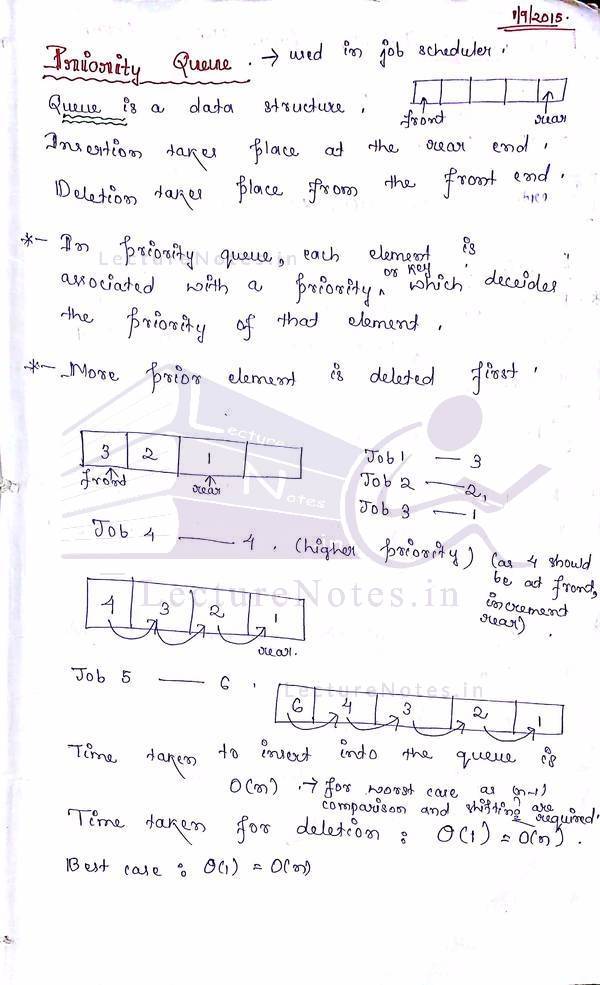 1/9/2015.
Priority Queue. → used in job scheduler.
Queue is a data structure.
front rear
Insertion takes place at the rear end.
Deletion takes place from the front end.
*- In priority queue, each element is
associated with a priority or key which deceides
the priority of that element.
*- More prior element is deleted first.
3 2 1
front rear
Job 1 — 3
Job 2 — 2,
Job 3 — 1
Job 4 — 4. (higher priority) (as 4 should
be at front,
increment
rear).
4 3 2 1
rear.
Job 5 — 6.
6 4 3 2 1
Time taken to insert into the queue is
O(n) → for worst case as (n-1)
comparison and shifting are
required.
Time taken for deletion : O(1) = O(n).
Best case : O(1) = O(n)
LectureNotes.in
Lecture
Notes
.in
LectureNotes.in
LectureNotes.in